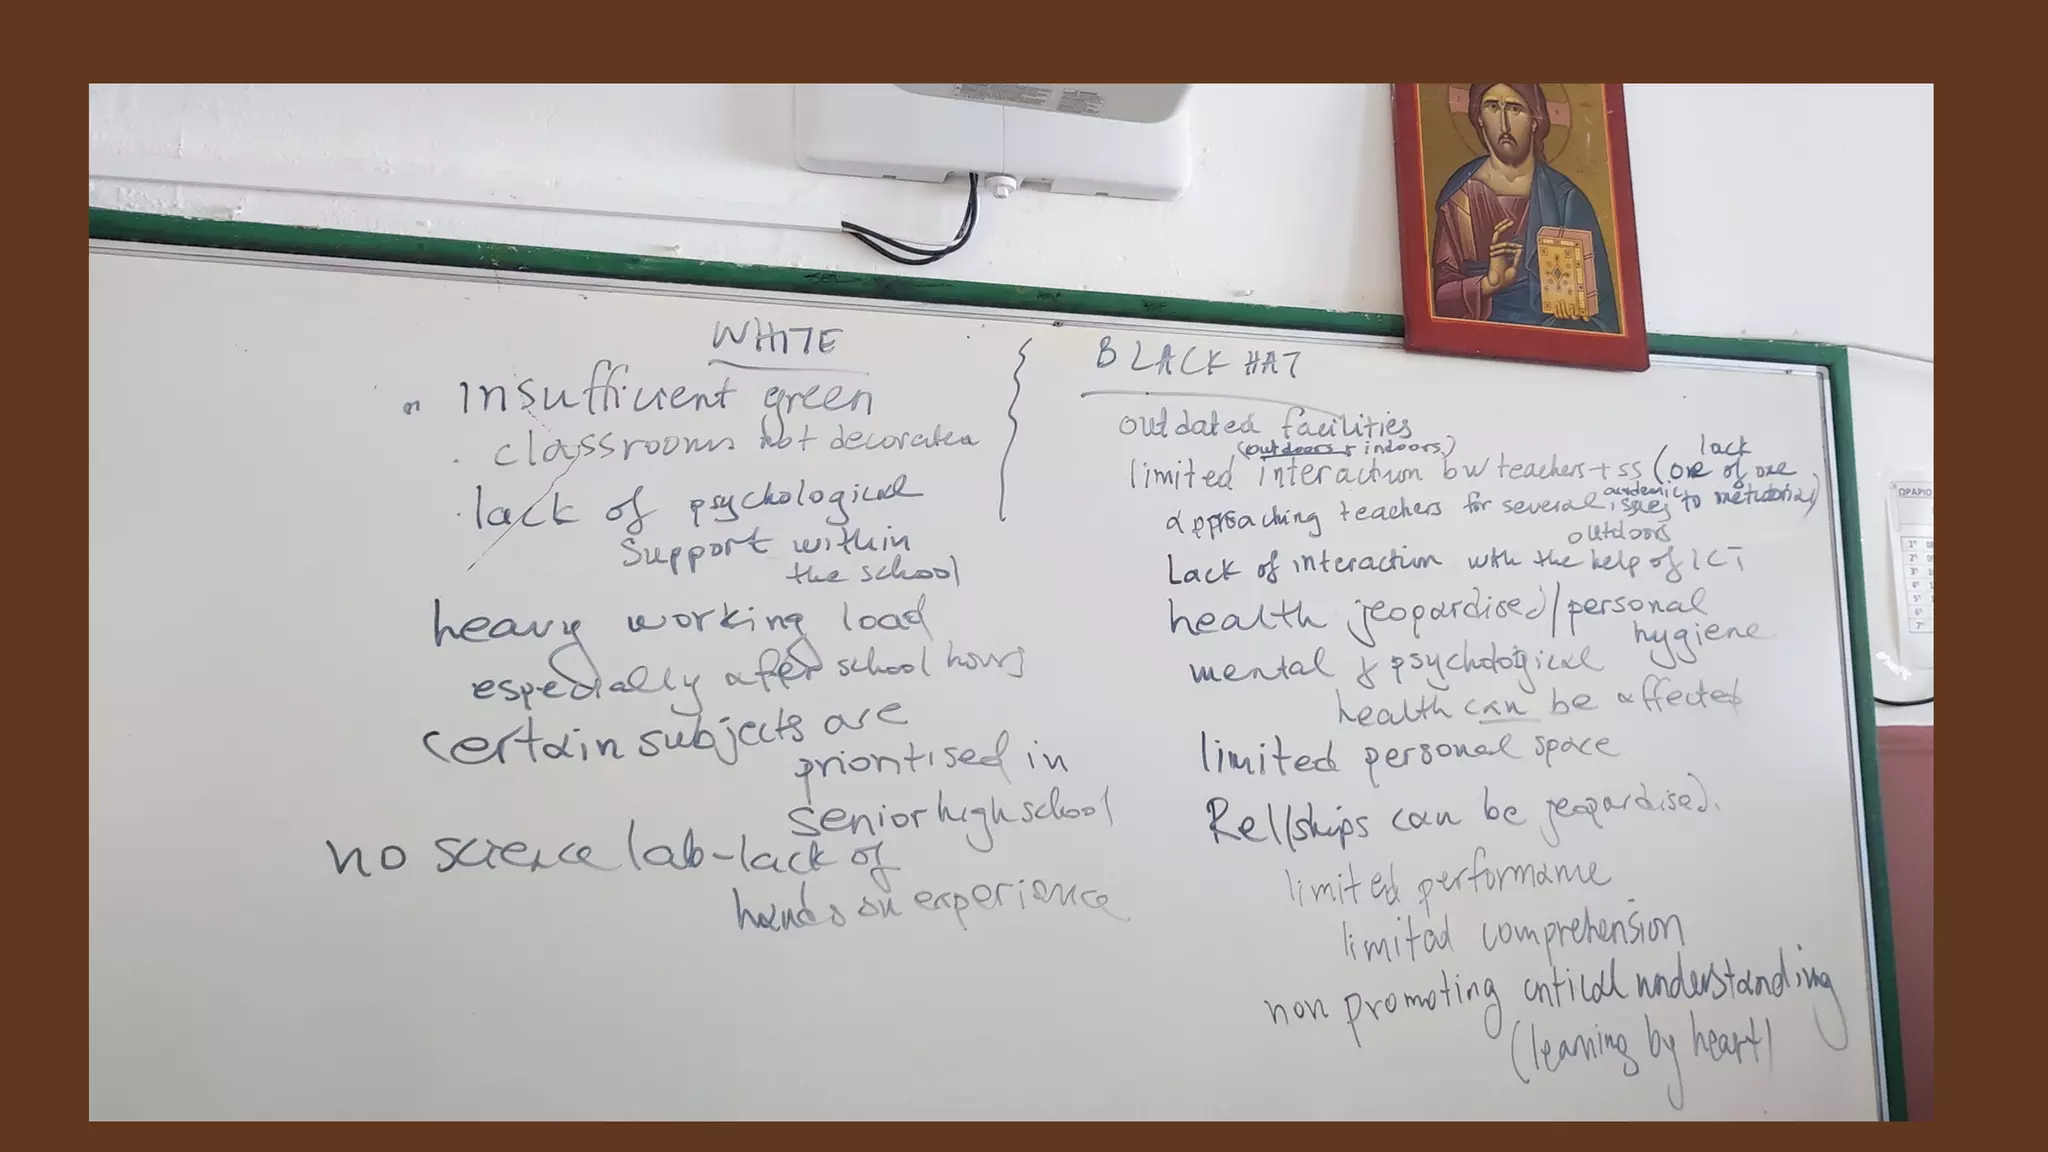 WHITE
insufficient green
. classrooms not decorated
. lack of psychological
support within
the school
heavy working load
especially after school hours
certain subjects are
prioritised in
senior high school
no science lab - lack of
hands on experience
BLACK HAT
outdated facilities
(outdoors + indoors)
limited interaction bw teachers + ss (one of one
lack
approaching teachers for several issues to
academic
outdoors
Lack of interaction with the help of ICT
health jeopardised/personal
hygiene
mental & psychological
health can be affected
limited personal space
Rel/ships can be jeopardised.
limited performance
limited comprehension
non promoting critical understanding
(learning by heart)
ΩΡΑΡΙΟ
1η
2η
3η
4η
5η
6η
7η